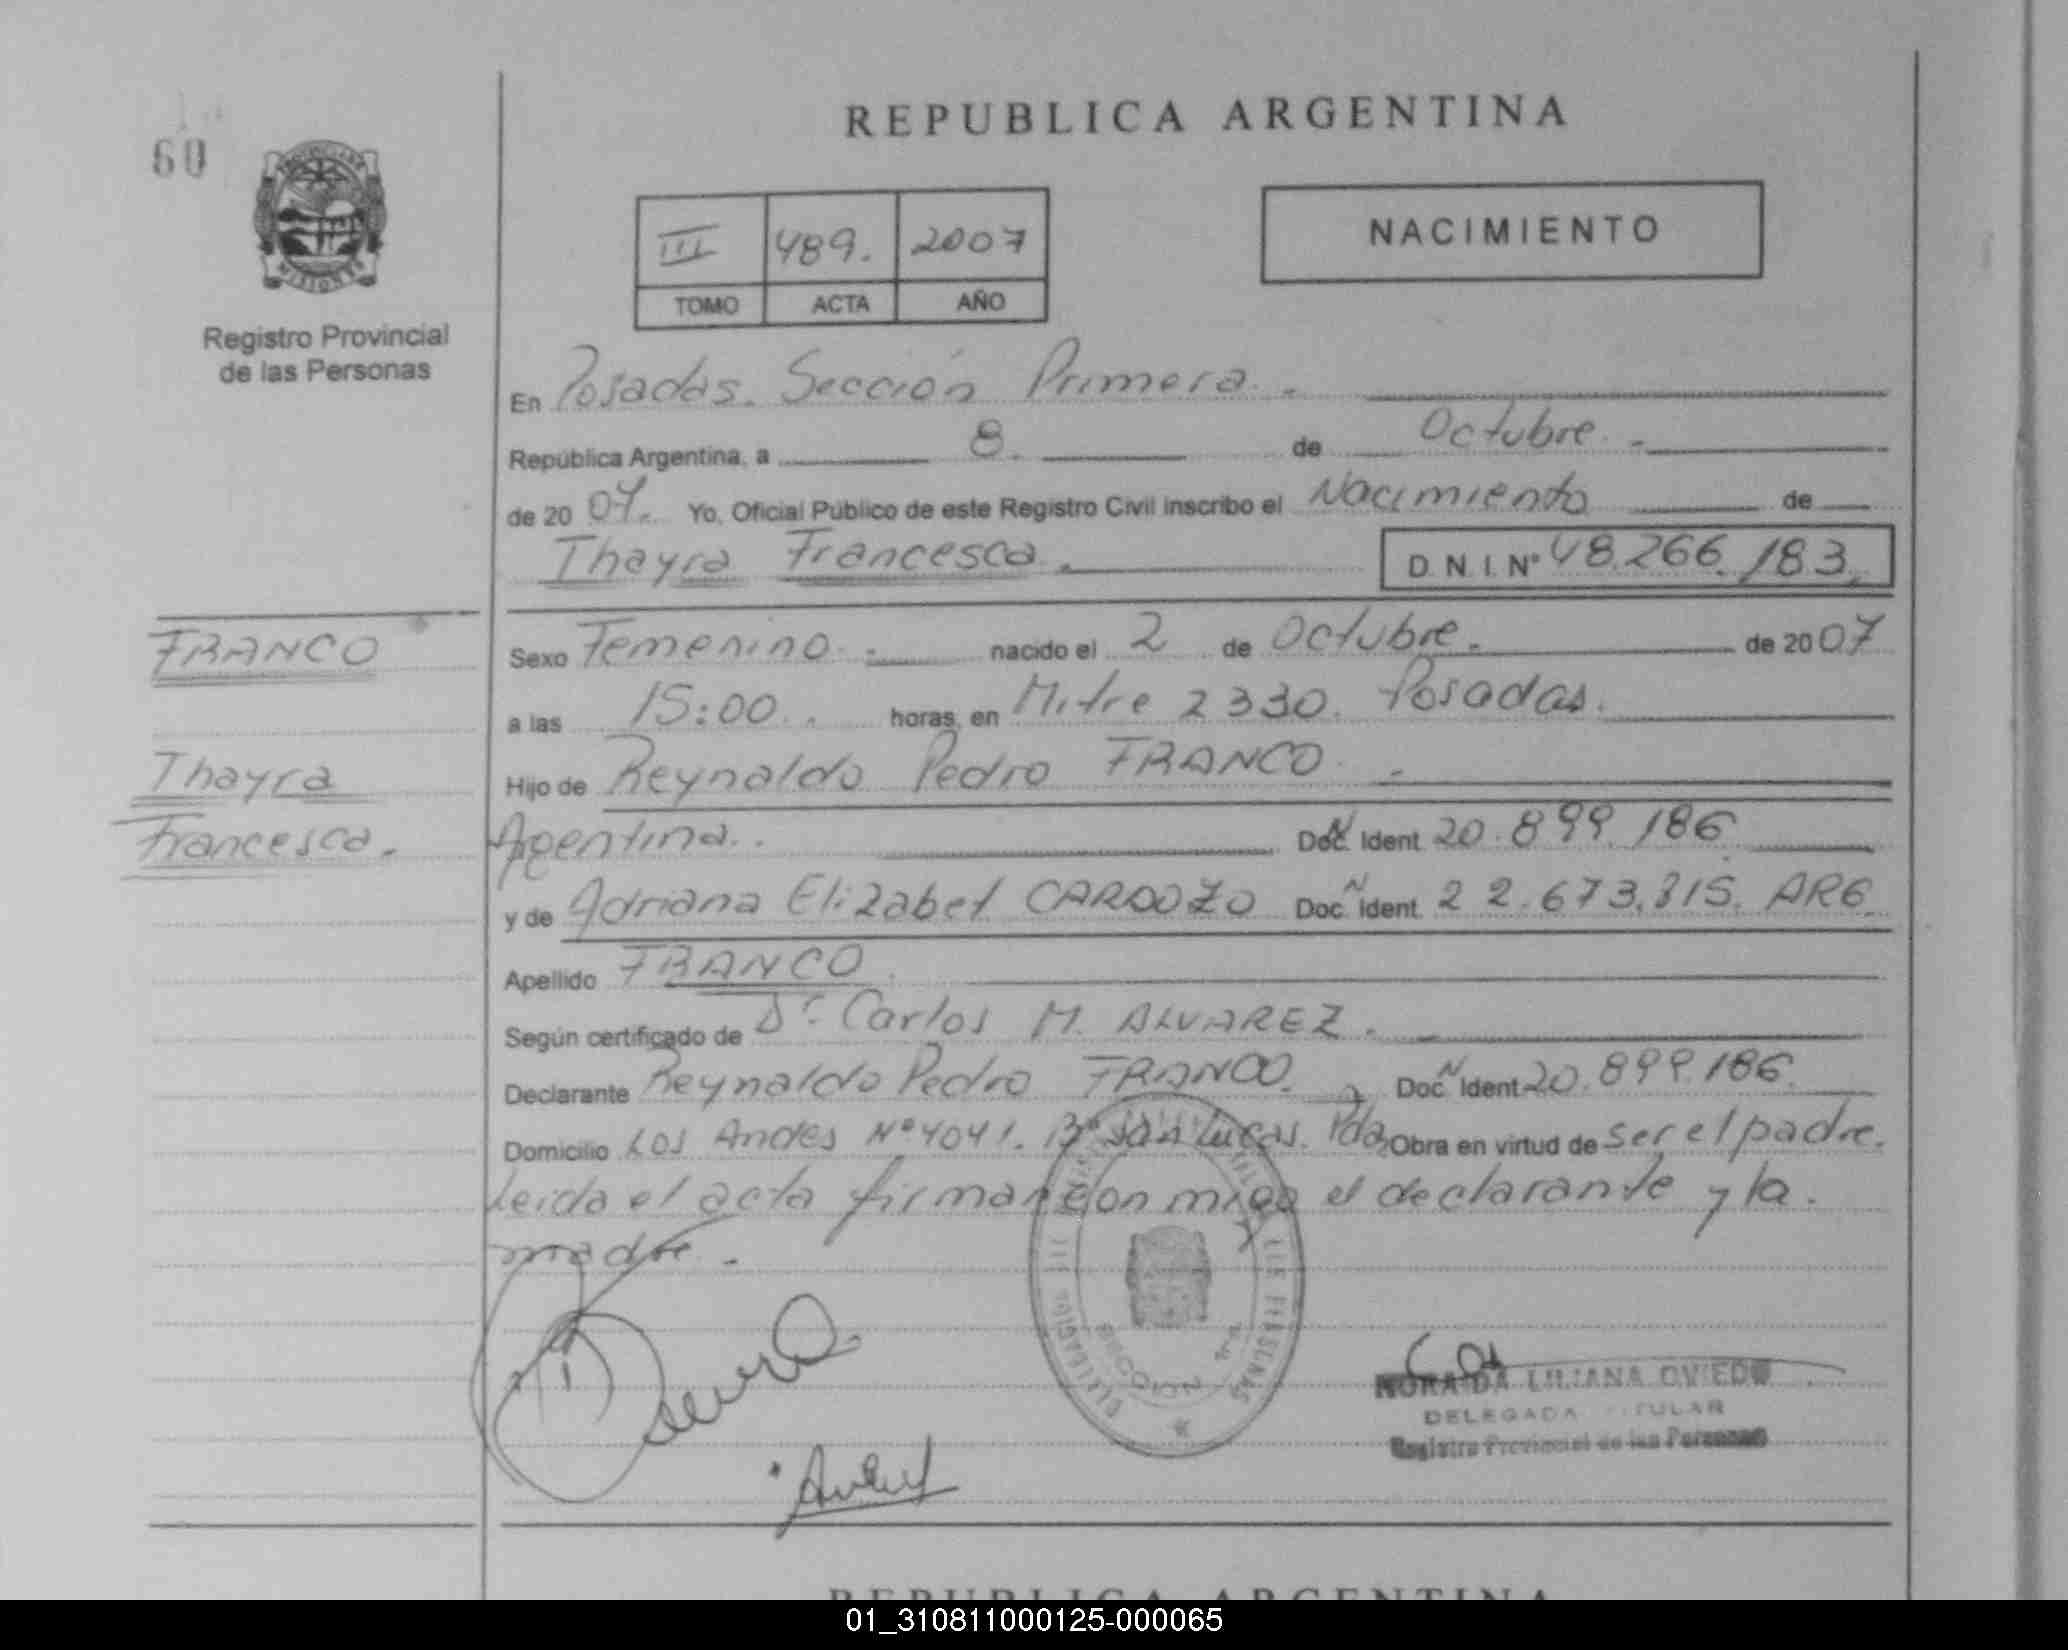 REPUBLICA ARGENTINA
60
NACIMIENTO
III 489. 2007
TOMO ACTA AÑO
Registro Provincial
de las Personas
En Posadas. Sección Primera.
República Argentina, a 8. de Octubre.
de 2007. Yo, Oficial Público de este Registro Civil inscribo el Nacimiento de
Thayra Francesca. D.N.I. Nº 48.266.183.
FRANCO
Sexo Femenino. nacido el 2 de Octubre. de 2007
a las 15:00. horas, en Mitre 2330. Posadas.
Thayra
Hijo de Reynaldo Pedro FRANCO
Francesca.
Agentina. Doc. N Ident 20.899.186
y de Adriana Elizabet CARDOZO Doc. N Ident. 22.673.315. ARG.
Apellido FRANCO
Según certificado de Dr. Carlos M. ALVAREZ.
Declarante Reynaldo Pedro FRANCO. Doc. N Ident 20.899.186.
Domicilio Los Andes Nº 4041. Bº San Lucas. Pdas Obra en virtud de ser el padre.
Leida el acta firman con migo el declarante y la
madre.
DELEGACION
DE LAS PERSONAS
SECCION 1ra
NORA IDA LILIANA OVIEDO
DELEGADA TITULAR
Registro Provincial de las Personas
REPUBLICA ARGENTINA
01_310811000125-000065